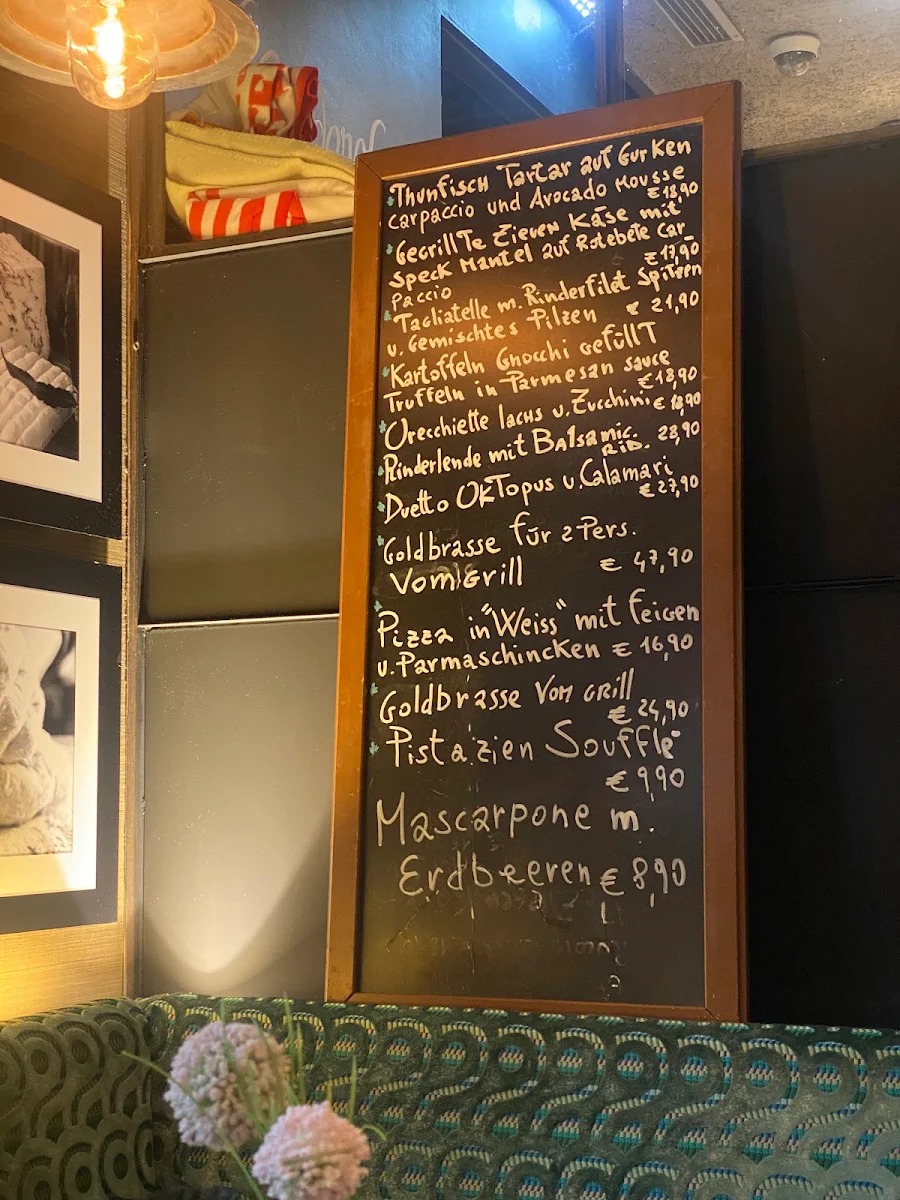 Thunfisch Tartar auf Gurken
Carpaccio und Avocado Mousse
€ 18,90
Gegrillte Ziegen Käse mit
Speck Mantel auf Rotebete Car-
paccio € 17,90
Tagliatelle m. Rinderfilet Spitzen
u. Gemischtes Pilzen € 21,90
Kartoffeln Gnocchi gefüllt
Truffeln in Parmesan sauce
€ 18,90
Orecchiette lachs u. Zucchini € 18,90
Rinderlende mit Balsamic.
RiD. 28,90
Duetto Oktopus u. Calamari
€ 27,90
Goldbrasse für 2 Pers.
Vom Grill € 47,90
Pizza in "Weiss" mit Feigen
u. Parmaschincken € 16,90
Goldbrasse Vom Grill
€ 24,90
Pistazien Soufflè
€ 9,90
Mascarpone m.
Erdbeeren € 8,90